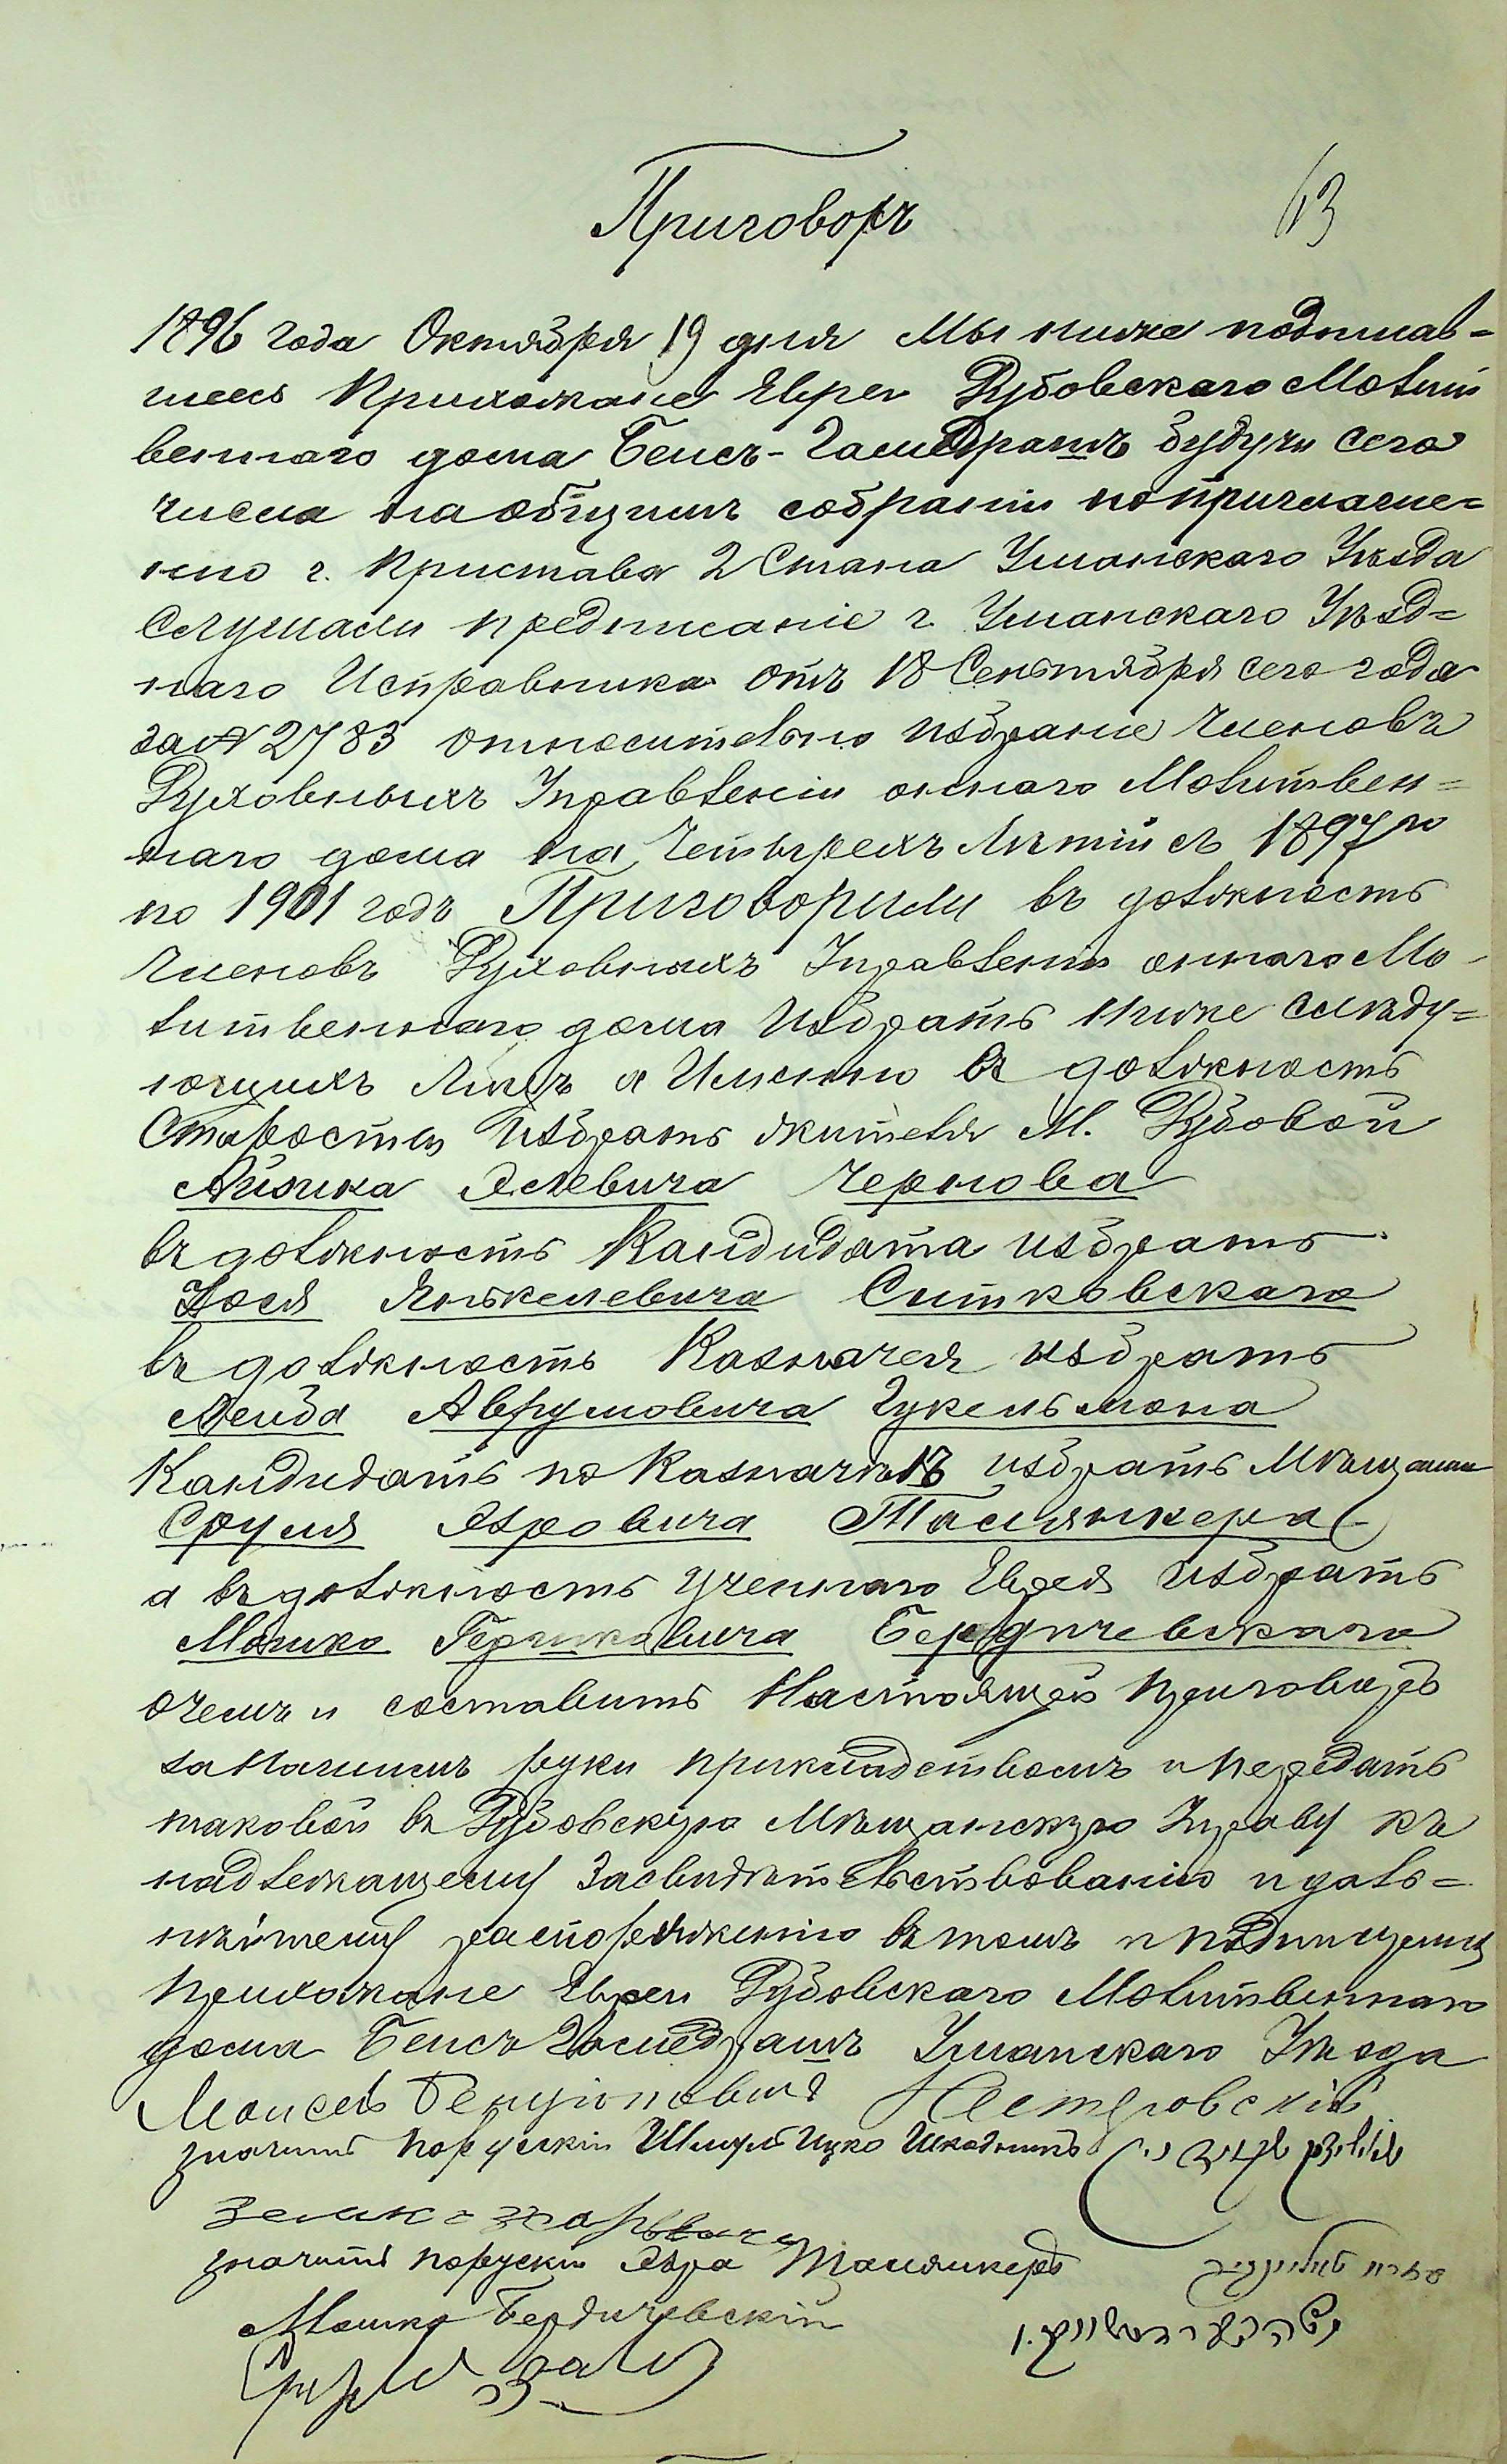 Приговоръ
63
1896 года Октября 19 дня Мы ниже подписав=
шеесь Прихожане Евреи Дубовскаго Молит
веннаго дома Бейсъ-Гамедрашъ будучи сего
числа на общимъ собраніи поприглаше=
нію г. Пристава 2 Стана Уманскаго Уѣзда
Слушали предписаніе г. Уманскаго Уѣзд=
наго Исправника отъ 18 Сентября сего года
за № 2783 относительно избраніе Членовъ
Духовныхъ Управленіи оннаго Молитвен=
наго дома на Четырехъ Лѣтіи съ 1897 го
по 1901 годъ Приговорили въ должность
Членовъ Духовныхъ Управленія оннаго Мо
литвеннаго дома Избрать ниже слѣду=
ющихъ Лицъ а Именно въ должность
Старосты Избрать жителя М. Дубовой
Айзика Элевича Чернова
въ должность Кандидата избрать
Іося Янкелевича Ситковскаго
въ должность Казначея избрать
Лейба Аврумовича Цукельмана
Кандидатъ по Казначеѣ избрать Мѣщанин
Сруля Эзровича Талянкера
а въ должность ученнаго Еврея избрать
Мошко Гершковича Бердичевскаго
очемъ и составить Настоящей Приговоръ
за Нашимъ руки прикладствомъ и передать
таковой въ Дубовскую Мѣщанскую Управу къ
надлежащему Засвидѣтельствованію и даль=
нѣйшему распоряженію въ томъ и подпишемся
Прихожане Евреи Дубовскаго Молитвеннаго
дома Бейсъ Гамедрашъ Уманскаго Уѣзда
Моисей Бенціоновичъ Нестеровскій
значитъ порусскіи Шмуль Ицко Школьникъ
Зелик
значитъ порусски Эзра Талянкеръ
Мошко Бердичевскій